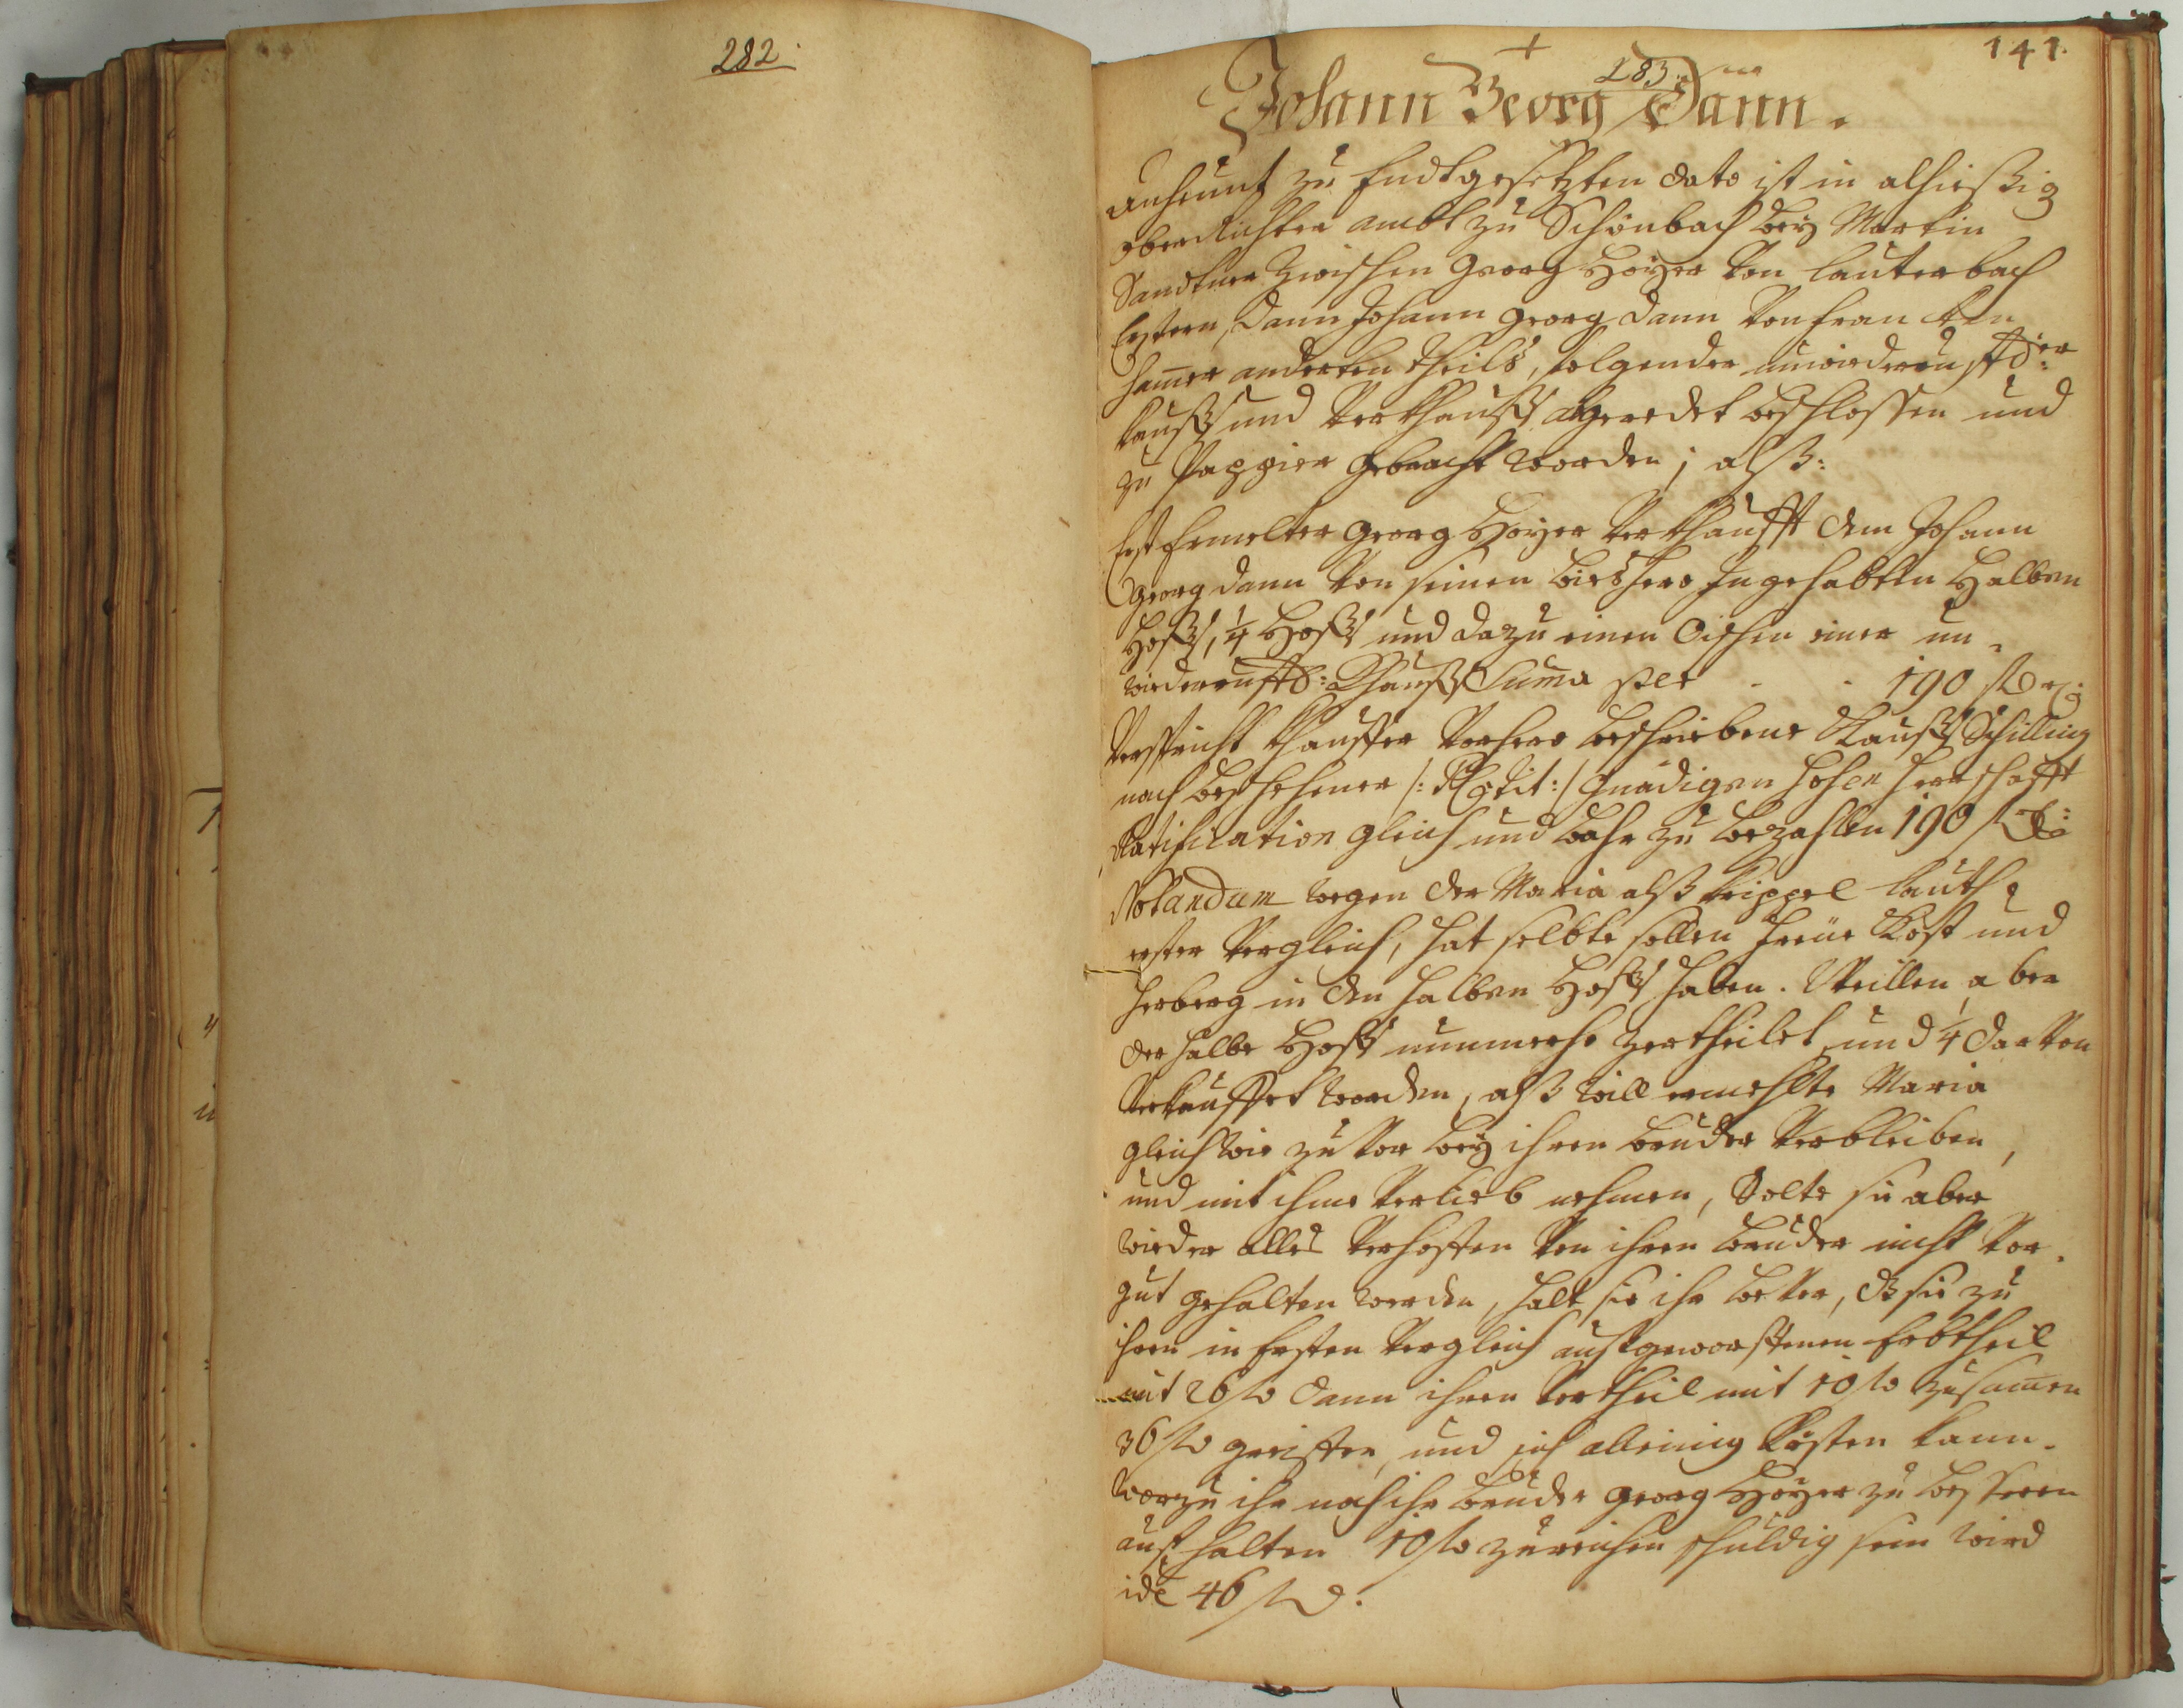 282.
141.
283.
Johann Georg Dann.
Anheunt zu Endtgesetzten dato ist in alhießig
OberRichter ambt zu Schönbach bey Martin
Sandtner zwischen Georg Hoyer von Lauterbach
Erstern, dann Johann Georg Dann von Franken
hamer anderten theils, folgender unwiederrufftl:er
kauff und verkhauff abgeredet beschlossen und
zu Pappier gebracht worden; alß:
Erst Ermelter Georg Hoyer verkhaufft dem Johann
Georg Dann von seinen biesshero Ingehabten Halben
Hoff, 1/4 Hoff und dazu einen Oichen einer un-
wiederrufftl: Khauff Suma per - - 190 fl
Verspricht Khauffer vorhero beschriebene Kauff Schilling
nach beschehener /: Tit: / Gnädigen hohen herrschafft
Ratification gleich und bahr zu bezahlen 190 fl
Notandum wegen der Maria alß krippel lauth
erster Vergleich, hat selbte sollen Ihrene Kost und
herberg in den halben Hoff haben. Weillen aber
der halbe Hoff nunmehr zertheilet, und 1/4 darvon
verkauffet worden, alß will ermehlte Maria
gleich wie zuvor bey ihren bruder verbleiben,
und mit ihme verlieb nehmen, Solte sie aber
wieder alles verhoffen von ihren bruder nicht vor-
gut gehalten werden, halt sie ihr bevor, dß sie zu
ihren in Ersten Vergleich außgeworffenen Erbtheil
mit 26 fl dann ihren vortheil mit 10 fl zusamen
36 fl greiffen, und sich alleinig kösten kann.
Worzu ihr noch ihr bruder Georg Hoyer zu besseren
auffhalten 10 fl zureichen schuldig sein wird
idē 46 fl.